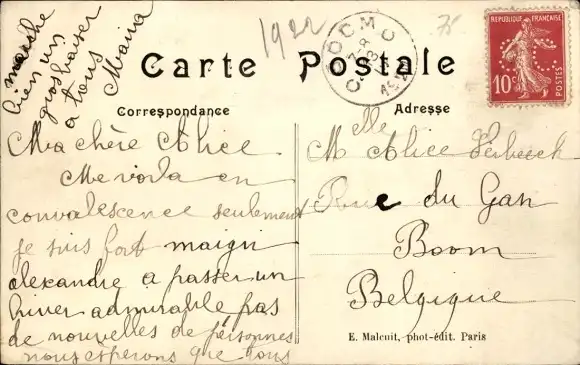 marche
bien un
gros baiser
a tous
Maria
1922
75
REPUBLIQUE FRANÇAISE
10c
POSTES
Carte Postale
Correspondance
Adresse
Ma chère Alice
Me voila en
convalescence seulement
je suis fort maigri
alexandre a passer un
hiver admirable pas
de nouvelles de personnes
nous esperons que tous
Melle Alice Verbeeck
Rue du Gaz
Boom
Belgique
E. Malcuit, phot-édit. Paris